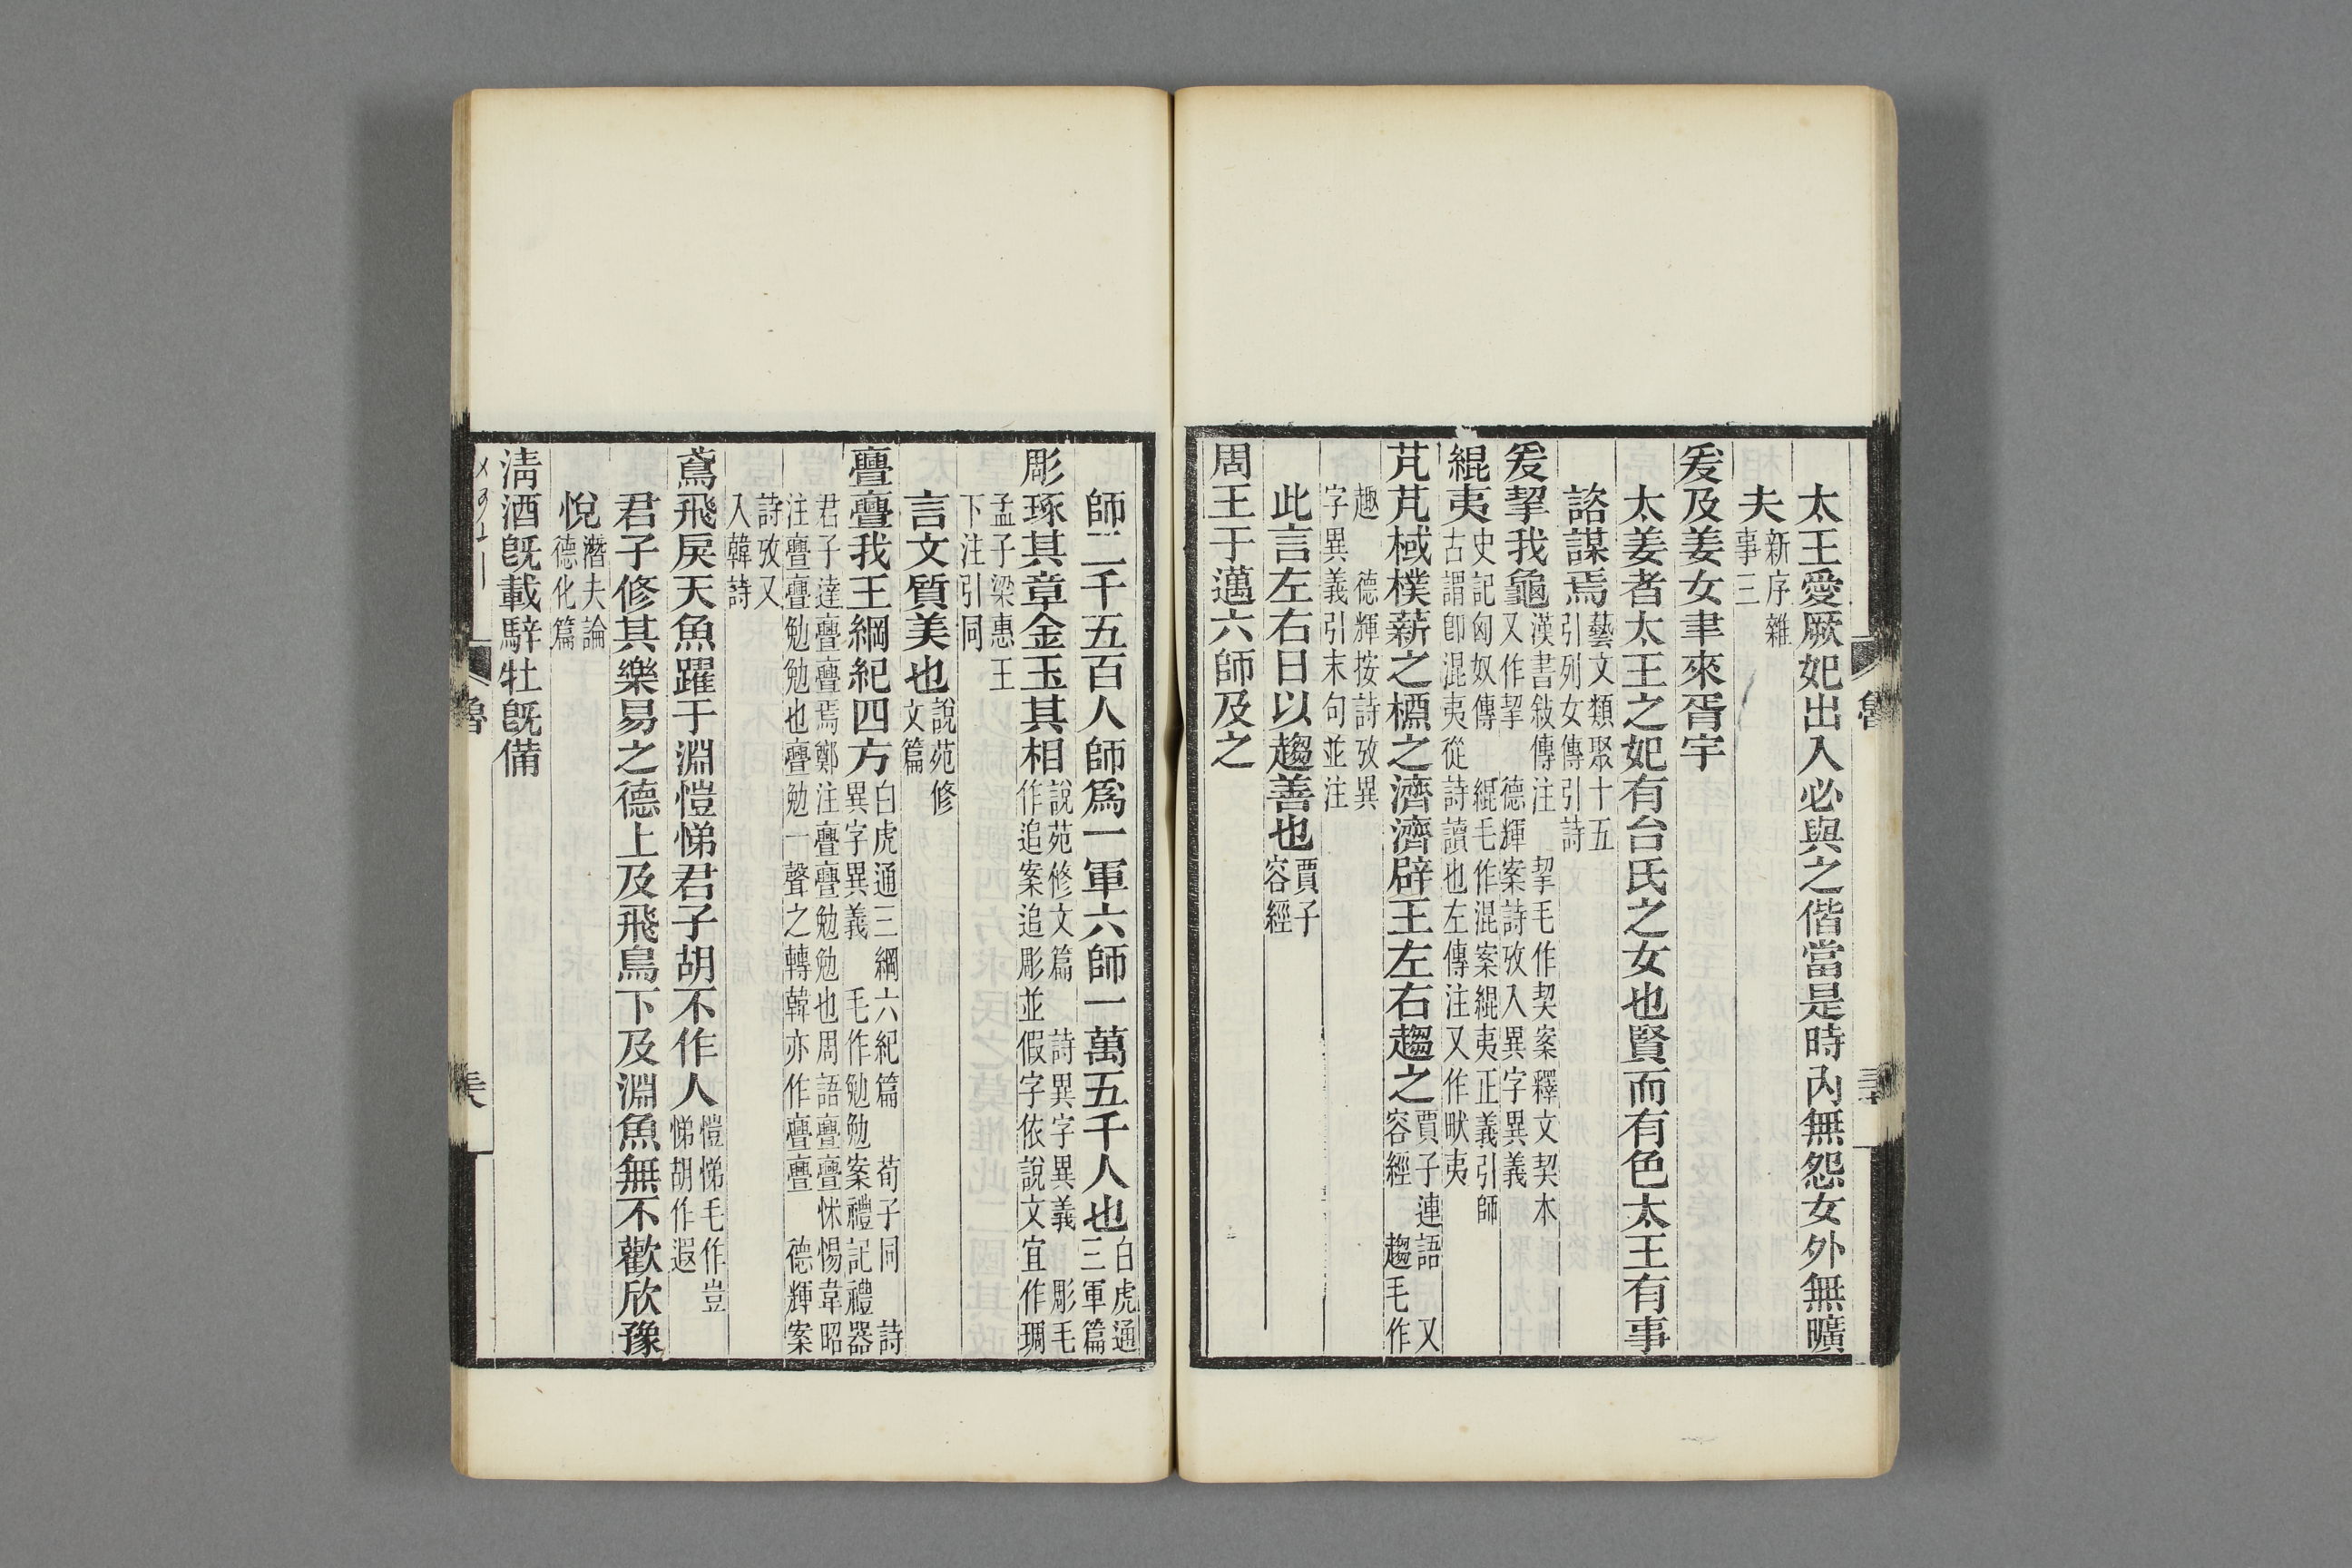 太王愛厥妃出入必與之偕當是時內無怨女外無曠
夫新序雜
事三
爰及姜女聿來胥宇
太姜者太王之妃有台氏之女也賢而有色太王有事
諮謀焉藝文類聚十五
引列女傳引詩
爰挈我龜漢書敍傳注 挈毛作契案釋文契本
又作挈 德輝案詩攷入異字異義
緄夷史記匈奴傳 緄毛作混案緄夷正義引師
古謂卽混夷從詩讀也左傳注又作畎夷
芃芃棫樸薪之槱之濟濟辟王左右趨之賈子連語 又
容經 趨毛作
趣 德輝按詩攷異
字異義引末句並注
此言左右日以趨善也賈子
容經
周王于邁六師及之
師二千五百人師爲一軍六師一萬五千人也白虎通
三軍篇
彫琢其章金玉其相說苑修文篇 詩異字異義 彫毛
作追案追彫並假字依說文宜作琱
孟子梁惠王
下注引同
言文質美也說苑修
文篇
亹亹我王綱紀四方白虎通三綱六紀篇 荀子同 詩
異字異義 毛作勉勉案禮記禮器
君子達亹亹焉鄭注亹亹勉勉也周語亹亹怵惕韋昭
注亹亹勉勉也亹勉一聲之轉韓亦作亹亹 德輝案
詩攷又
入韓詩
鳶飛戾天魚躍于淵愷悌君子胡不作人愷悌毛作豈
悌胡作遐
君子修其樂易之德上及飛鳥下及淵魚無不歡欣豫
悅潛夫論
德化篇
淸酒旣載騂牡旣備